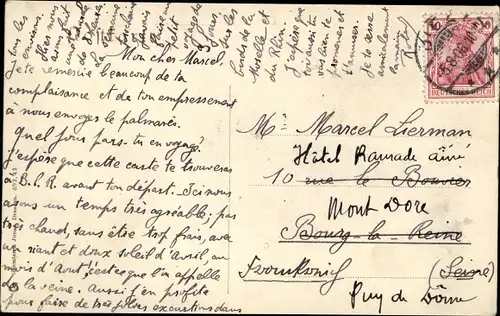 Mon cher Marcel,
Je te remercie beaucoup de ta
complaisance et de ton empressement
à nous envoyer le palmarès.
Quel jour pars-tu en voyage?
J'espère que cette carte te trouvera
à B.l.R. avant ton départ. Ici nous
avons un temps très agréable; pas
très chaud, sans être trop frais, avec
un riant et doux soleil d'avril, au
mois d'Août! c'est ce que l'on appelle
de la veine. Aussi j'en profite
pour faire de très jolies excursions dans
tous les
environs
Hier nous
avons
petit
voyage de
3 jours
sur les
bords de la
Moselle et
du Rhin.
J'espère que
toi aussi tu
vas bien te
promener et
t'amuser.
Je te serre
amicalement
la main
10 10
DEUTSCHES REICH
Mr Marcel Lierman
Hôtel Ramade aîné
10 rue le Bouvier
Mont Dore
Bourg-la-Reine
Frankreich (Seine)
Puy de Dôme